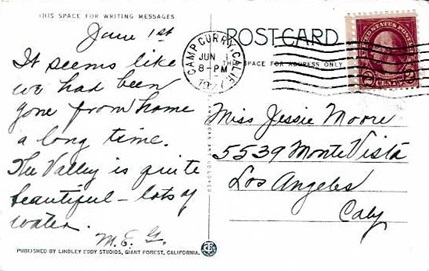 THIS SPACE FOR WRITING MESSAGES
June 1st
It seems like
we had been
gone from home
a long time.
The Valley is quite
beautiful - lots of
water.
M.E.G.
PUBLISHED BY LINDLEY EDDY STUDIOS, GIANT FOREST, CALIFORNIA.
POST CARD
SPACE FOR ADDRESS ONLY
CAMP CURRY, CALIF.
JUN 1
8-PM
Miss Jessie Moore
5539 Monte Vista
Los Angeles
Caly